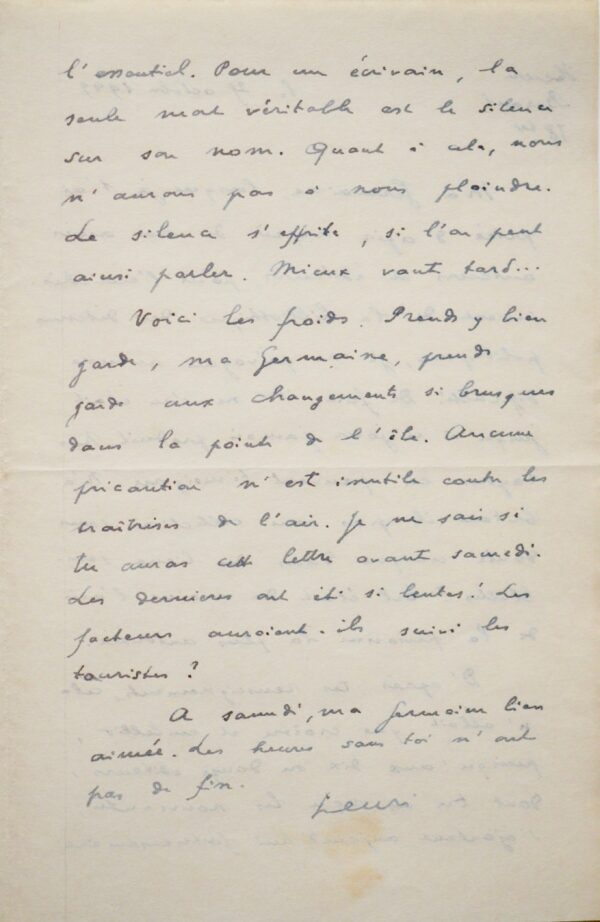 l'essentiel. Pour un écrivain, la
seule mort véritable est le silence
sur son nom. Quant à cela, nous
n'aurons pas à nous plaindre.
Le silence s'effrite, si l'on peut
ainsi parler. Mieux vaut tard...
Voici les froids. Prends y bien
garde, ma Germaine, prends
garde aux changements si brusques
dans la pointe de l'île. Aucune
précaution n'est inutile contre les
traîtrises de l'air. Je ne sais si
tu auras cette lettre avant samedi.
Les dernières ont été si lentes! Les
facteurs auraient-ils suivi les
touristes?
A samedi, ma Germaine bien
aimée. Les heures sans toi n'ont
pas de fin.
Henri